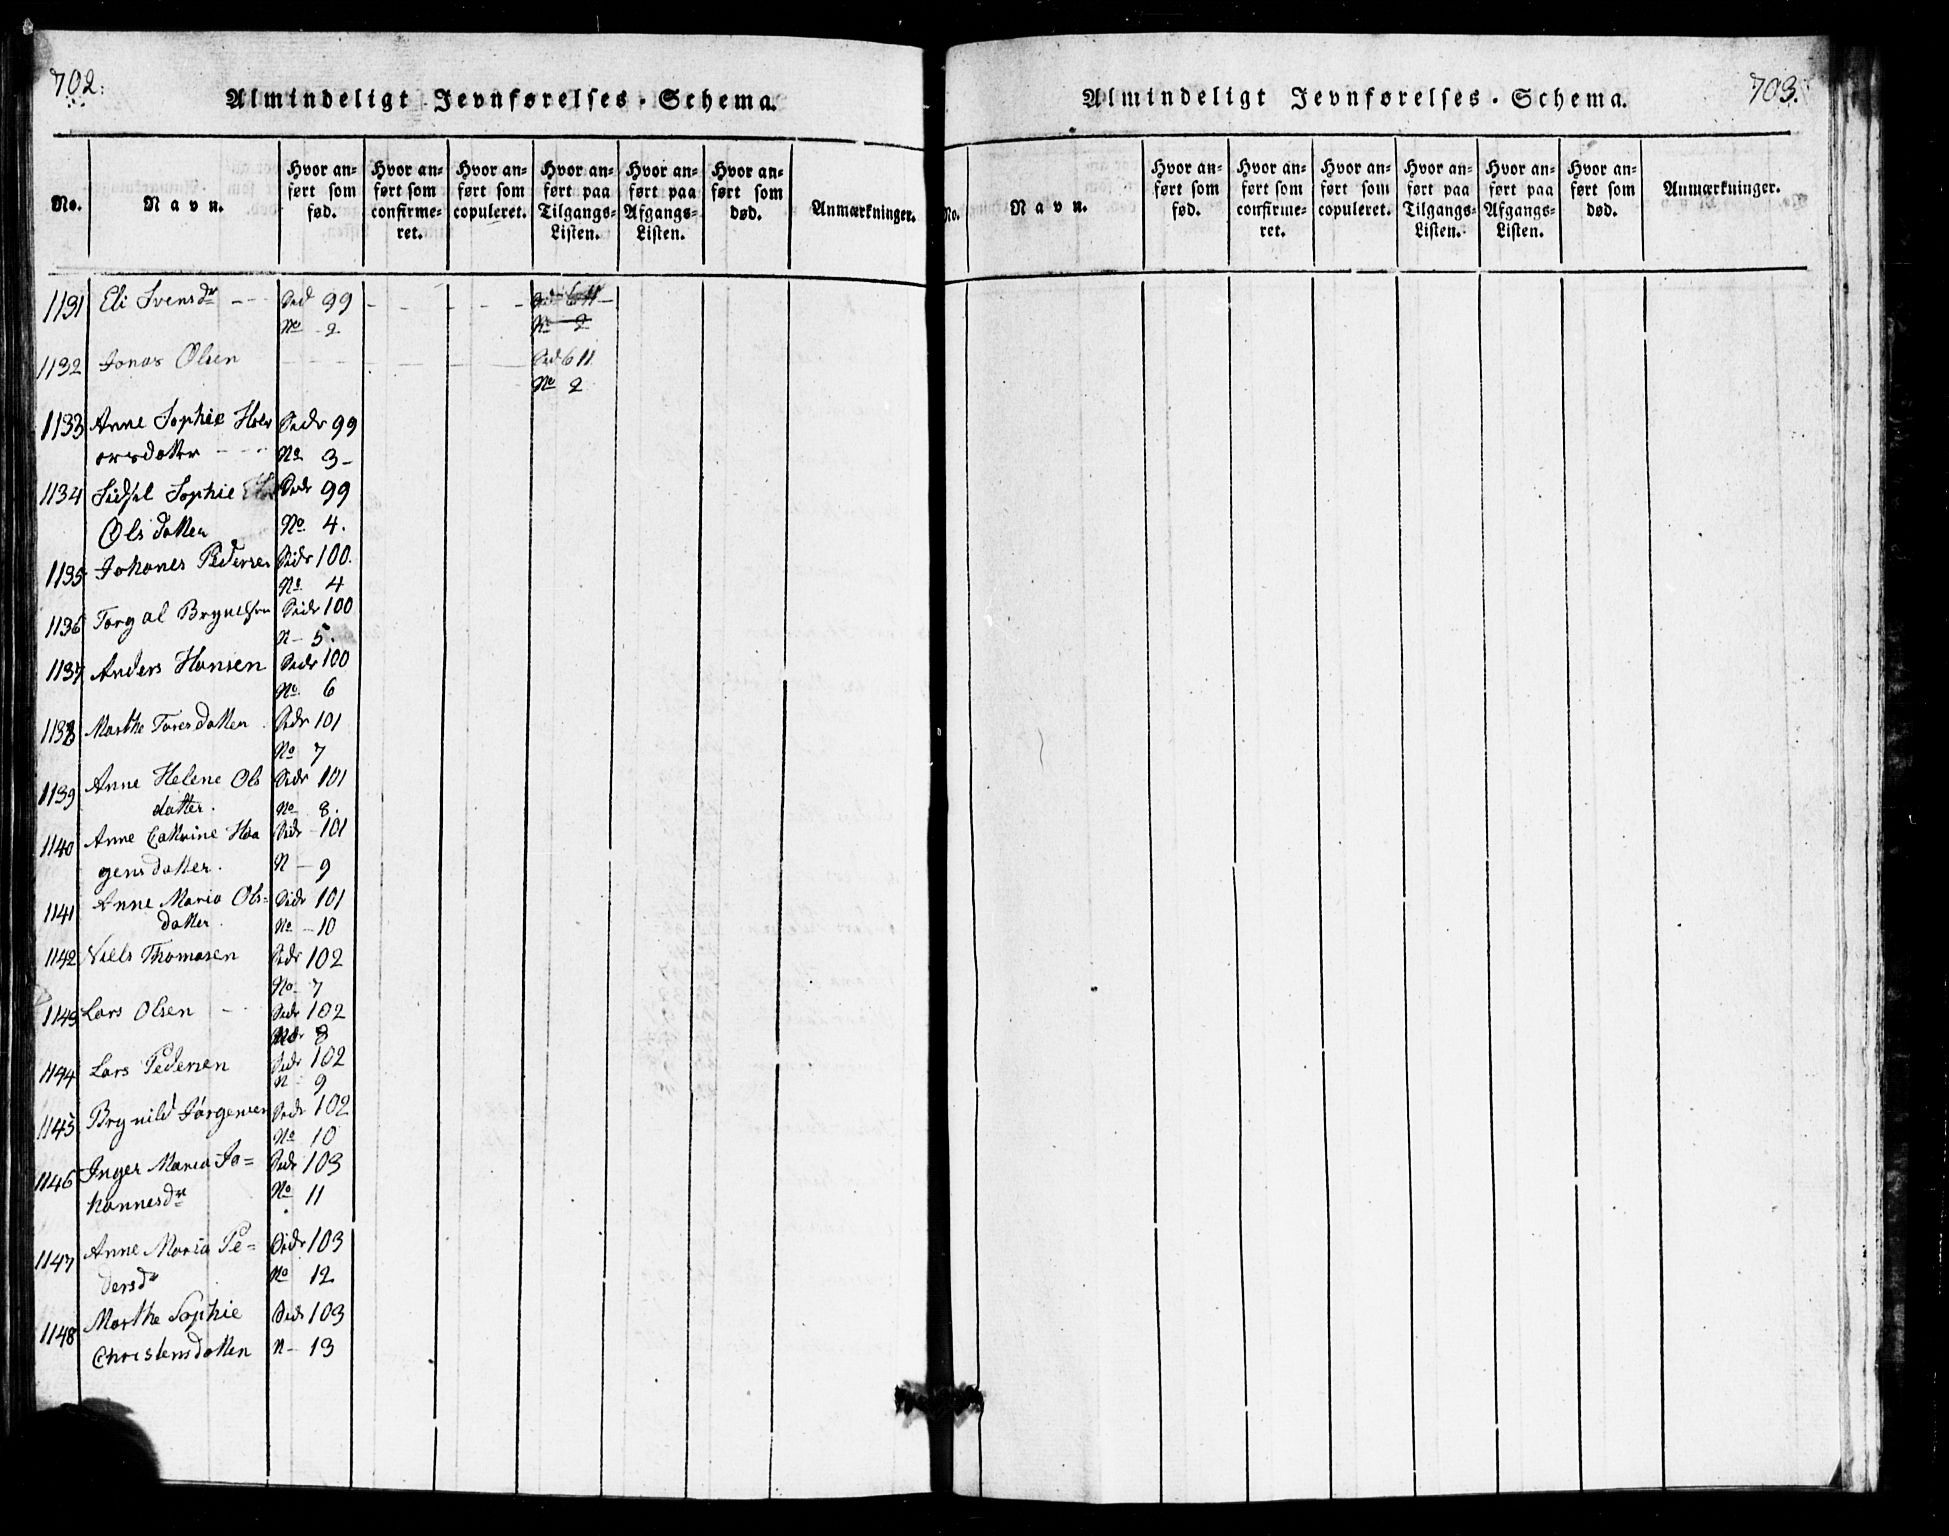 702.
Almindeligt Jevnførelses-Schema.
No.
Navn.
Hvor an-
ført som
fød.
Hvor an-
ført som
confirme-
ret.
Hvor an-
ført som
copuleret.
Hvor an-
ført paa
Tilgangs-
Listen.
Hvor an-
ført paa
Afgangs-
Listen.
Hvor an-
ført som
død.
Anmærkninger.
1131 Eli Svensdr Sid 99
No 2
1132 Jonas Olsen Sid 611
No 2
1133 Anne Sophie Sidr 99
No 3
1134 Sidsel Sophie Sidr 99
Olsdatter No. 4.
1135 Johanes Pedersen Sidr 100.
No. 4
1136 Torgal Brynelsen Sidr 100
N - 5.
1137 Anders Hansen Sidr 100
No. 6
1138 Marthe Toresdatter Sidr 101
No 7
1139 Anne Helene Ols Sidr 101
datter. No 8.
1140 Anne Cathrine Haa Sidr 101
gensdatter. N - 9
1141 Anne Maria Ols- Sidr 101
datter. No - 10
1142 Niels Thomasen Sidr 102
No 7
1143 Lars Olsen Sidr 102
8
1144 Lars Pedersen Sidr 102
N 9
1145 Brynild Jørgensen Sidr 102
No 10
1146 Inger Maria Jo= Sidr 103
hannesdr No 11
1147 Anne Maria Pe= Sidr 103
dersdr No 12
1148 Marthe Sophie Sidr 103
Christensdatter N - 13
703.
Almindeligt Jevnførelses-Schema.
No.
Navn.
Hvor an-
ført som
fød.
Hvor an-
ført som
confirme-
ret.
Hvor an-
ført som
copuleret.
Hvor an-
ført paa
Tilgangs-
Listen.
Hvor an-
ført paa
Afgangs-
Listen.
Hvor an-
ført som
død.
Anmærkninger.